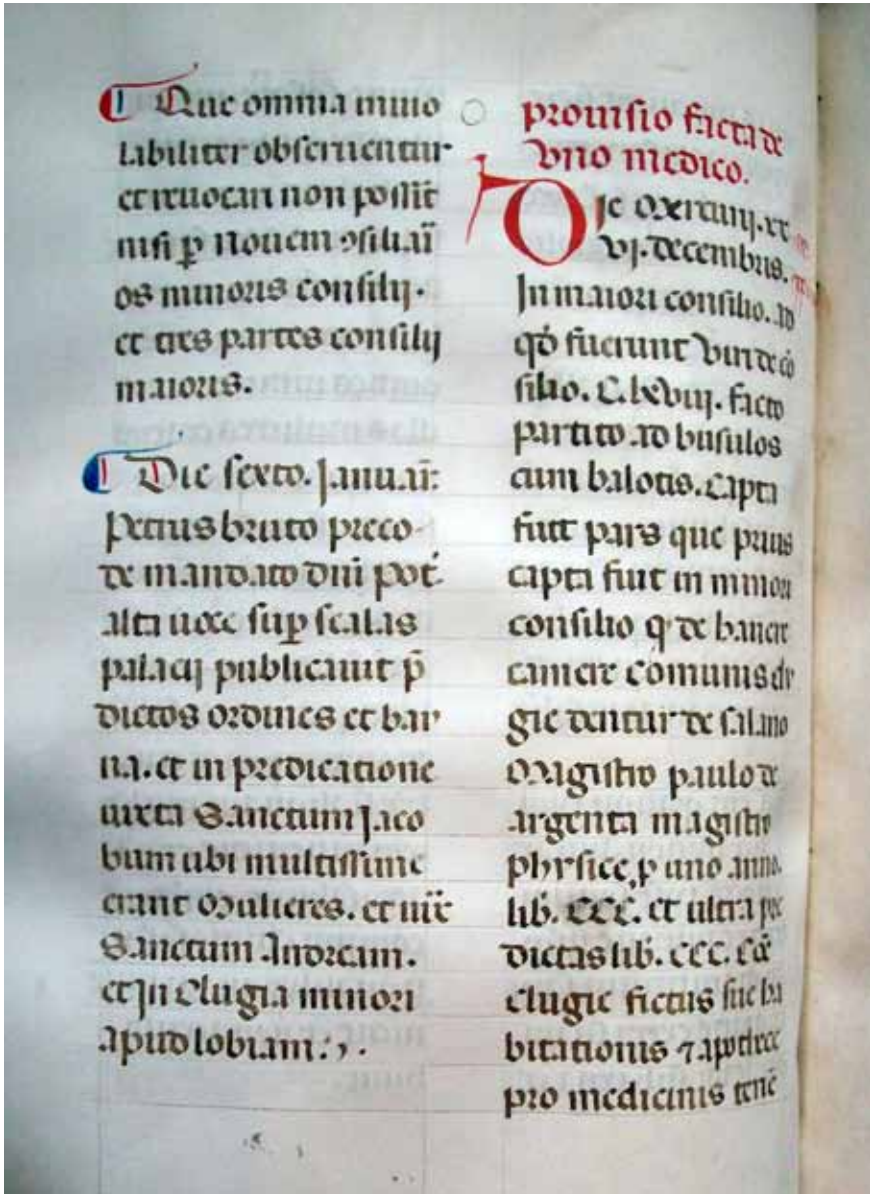 Que omnia inuio
labiliter obseruentur
et reuocari non possit̄
nisi ꝑ nouem ꝯsiliari
os minoris consilij.
et tres partes consilij
maioris.
Die sexto. Januarij:
Petrus bruto preco
de mandato dnī pot̄.
alta uoce suꝑ scalas
palacij publicauit p̄
dictos ordines et bar
na. et in predicatione
iuxta Sanctum Jaco
bum ubi multissime
erant Mulieres. et iux̄
Sanctum Andream.
et In Clugia minori
apud lobiam.
prouisio facta de
vno medico.
Die
vj. decembris.
In maiori consilio. ad
qd̄ fuerunt Viri de cō
silio. C.lxviij. facto
partito ad busulos
cum balotis. Capta
fuit pars que prius
capta fuit in minori
consilio ꝙ de hauere
camere comunis clu
gie dentur de salario
Magistro paulo de
argenta magistro
physice, ꝑ uno anno.
lib. CCC. et ultra pre
dictas lib. CCC. Cōe
clugie fictus sue ha
bitationis ⁊ apothece
pro medicinis tenē